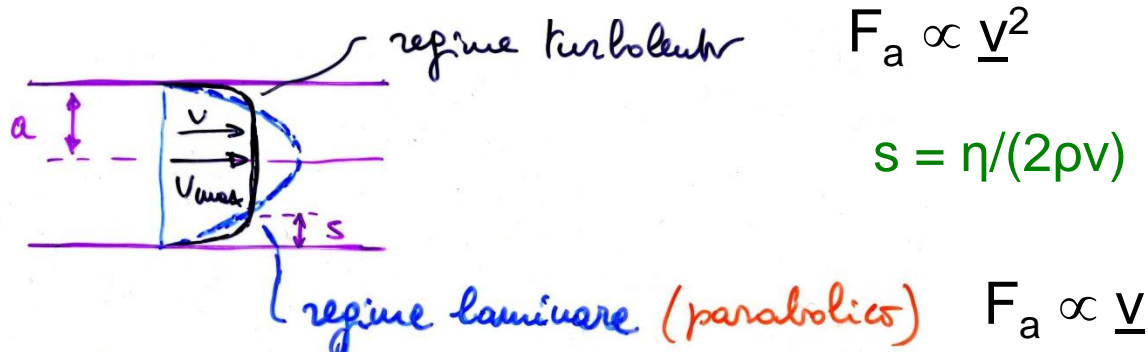 regime turbolento Fₐ ∝ v²
a
v
vmax
s
s = η/(2ρv)
regime laminare (parabolico) Fₐ ∝ v